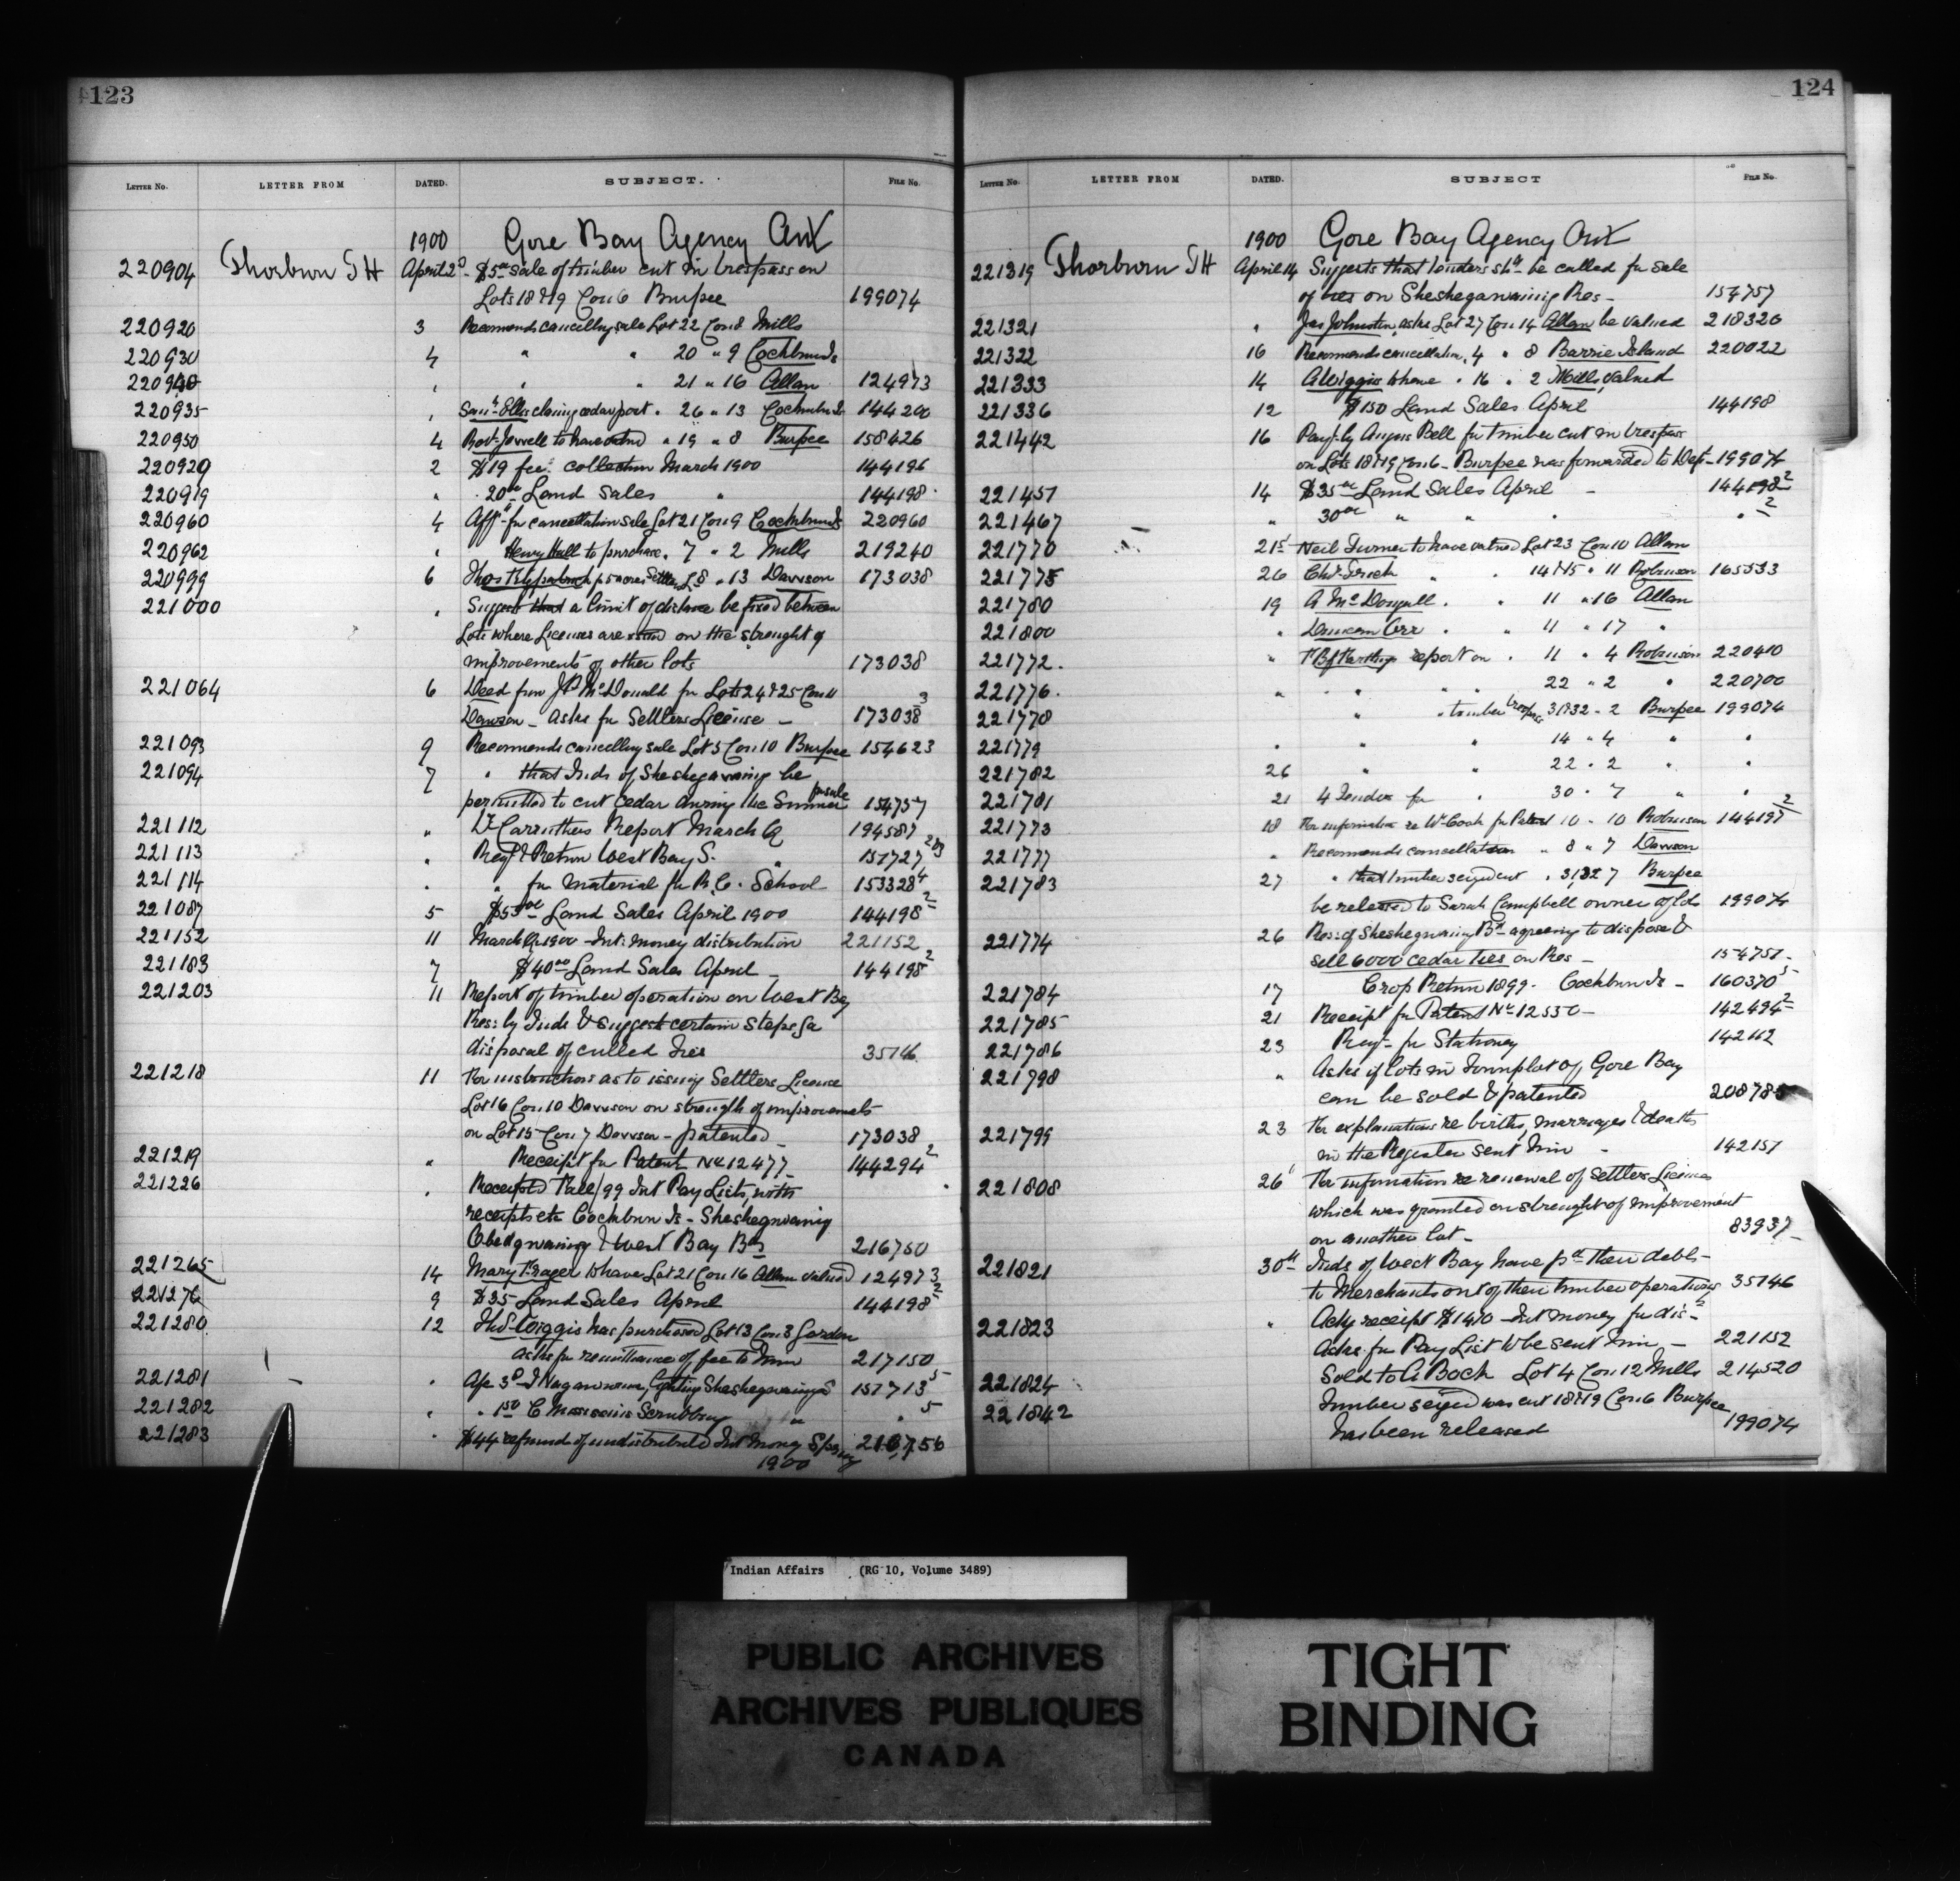 123
LETTER No. LETTER FROM DATED. SUBJECT. FILE No.
1900 Gore Bay Agency Ont
220904 Thorburn TH April 2d $5 00 sale of timber cut in trespass on
Lots 18 & 19 Con 6 Burpee 199074
220920 3 Recomends cancelling sale Lot 22 Con 8 Mills
220930 4 " " 20 " 9 Cockburn Is
220940 " " " 21 " 16 Allan 124973
220935 " Saml Ellis claims cedar post " 26 " 13 Cockburn Is 144200
220950 4 Robt Jewell to have " 19 " 8 Burpee 158426
220929 2 $19 fee collection March 1900 144196
220919 " 20 00 Land Sales " 144198
220960 4 Afft for cancellation sale Lot 21 Con 9 Cockburn Is 220960
220962 " Henry Hall to purchase " 7 " 2 Mills 219240
220999 6 Thos 8 " 13 Dawson 173038
221000 " Suggests that a limit of distance be fixed between
Lots where Licenses are issued on the strenght of
improvements of other lots 173038
221064 6 Deed from J P McDonald for Lots 24 & 25 Con 11
Dawson - asks for Settlers License - 173038 3
221093 9 Recomends cancelling sale Lot 5 Con 10 Burpee 154623
221094 7 " that Inds of Sheshegwaning be
permitted to cut cedar during the Summer for sale 154757
221112 " Dr Carruthers Report March Q 194587
221113 " Reqn & Return West Bay S. " 157727 283
221114 " " for material for R.C. School 153328 4
221087 5 $53 00 Land Sales April 1900 144198 2
221152 11 March Q 1900 - Int: money distribution 221152
221183 7 $40 00 Land Sales April - 144198 2
221203 11 Report of timber operation on West Bay
Res: by Inds & suggest certain steps for
disposal of culled ties 35746
221218 11 For instructions as to issuing Settlers License
Lot 16 Con 10 Dawson on strength of improvements
on Lot 15 Con 7 Dawson - patented - 173038
221219 " Receipt for Patent No 12477 144294 2
221226 " Receipted Fall/99 Int Pay Lists, with
receipts etc Cockburn Is - Sheshegwaning
Obedgwaning & West Bay Bds 216750
221265 14 Mary Frager to have Lot 21 Con 16 Allan valued 124973
221276 9 $35 Land Sales April 144198 2
221280 12 Thos Wiggis has purchased Lot 13 Con 3 Gordon
asks for remittance of fee to him 217150
221281 " A/c 3 00 J Nagawnawe, Lighting Sheshegwaning S 151713 5
221282 " " 1 50 C Scrubbing " " 5
221283 " $44 refund of undistributed Int Money Spring 216756
1900
124
LETTER No. LETTER FROM DATED. SUBJECT FILE No.
1900 Gore Bay Agency Ont
221319 Thorburn TH April 14 Suggests that tenders shd be called for sale
of ties on Sheshegwaning Res - 154757
221321 " Jas Johnston, asks Lot 27 Con 14 Allan be valued 218326
221322 16 Recomends cancellation " 4 " 8 Barrie Island 220022
221333 14 A Wiggis to have " 16 " 2 Mills, valued
221336 12 $150 Land Sales April 144198
221442 16 Payt by Angus Bell for timber cut in trespass
on Lots 18 & 19 Con 6 - Burpee was forwarded to Dept - 199074
221457 14 $35 00 Land Sales April - 144198 2
221467 " 30 00 " " " " 2
221770 21st Neil Turner to have valued Lot 23 Con 10 Allan
221775 26 Chs " " 14 & 15 " 11 Robinson 165533
221780 19 A McDougall " " 11 " 16 Allan
221800 " Duncan Orr " " 11 " 17 "
221772 " report on " 11 " 4 Robinson 220410
221776 " " " " 22 " 2 " 220700
221778 " " timber trespass 31 & 32 " 2 Burpee 199074
221779 " " " 14 " 4 " "
221782 26 " " 22 " 2 " "
221781 21 4 Tenders for " 30 " 7 " "
221773 18 For information re Wm Cook for Patent 10 " 10 Robinson 144197 2
221777 " Recomends cancellation " 8 " 7 Dawson
221783 27 " that timber seized cut " 31, 32 7 Burpee
be released to Sarah Campbell owner of lots 199074
221774 26 Res: of Sheshegwaning Bd agreeing to dispose &
sell 6000 cedar ties on Res - 154757
221784 17 Crop Return 1899 - Cockburn Is - 160370 5
221785 21 Receipt for Patent No 12550 - 142494 2
221786 23 Reqn for Stationery 142162
221798 " Asks if lots in Townplot of Gore Bay
can be sold & patented 208785
221799 23 For explanations re births, marriages & deaths
in the Register sent him - 142157
221808 26 For information re renewal of Settlers License
which was granted on strenght of improvement
on another lot - 83937
221821 30th Inds of West Bay have pd their debts
to Merchants out of their timber operations 35746
221823 " Ackg receipt $1410 - Int money for dis-
Asks for Pay List to be sent him - 221152
221824 Sold to A Bock Lot 4 Con 12 Mills 214520
221842 Timber seized was cut 18 & 19 Con 6 Burpee
has been released 199074
Indian Affairs (RG 10, Volume 3489)
PUBLIC ARCHIVES
ARCHIVES PUBLIQUES
CANADA
TIGHT
BINDING